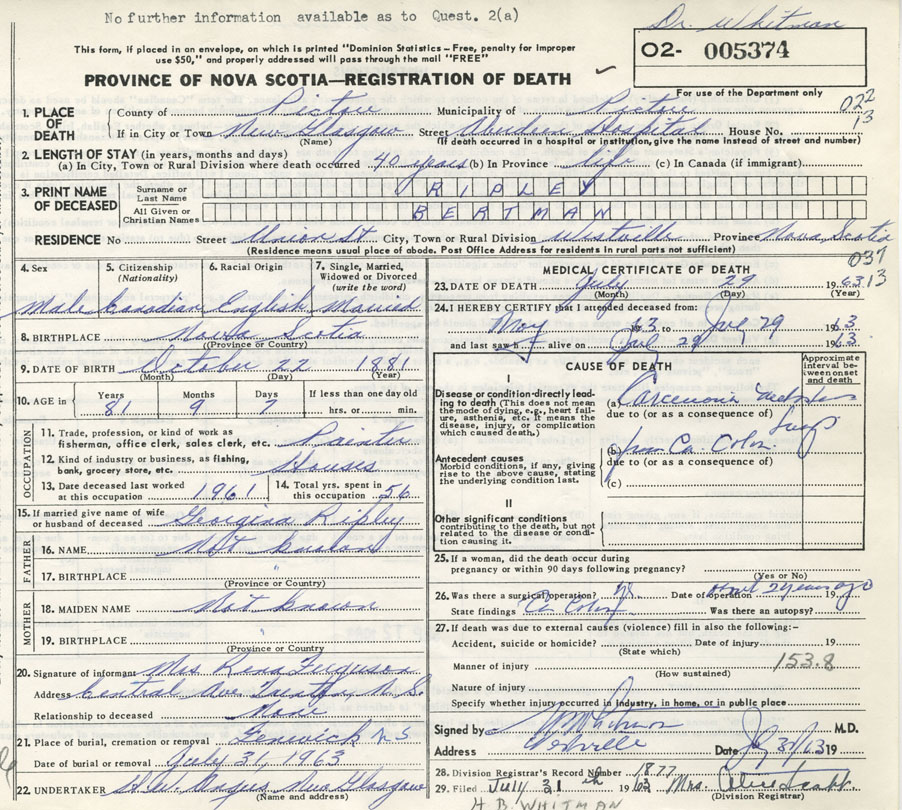 No further information available as to Quest. 2(a)
Dr. Whitman
This form, if placed in an envelope, on which is printed "Dominion Statistics – Free, penalty for improper
use $50," and properly addressed will pass through the mail "FREE"
O2- 005374
PROVINCE OF NOVA SCOTIA—REGISTRATION OF DEATH
For use of the Department only
1. PLACE OF DEATH
County of Pictou Municipality of Pictou
022
13
If in City or Town New Glasgow Street Aberdeen Hospital House No.
(Name) (If death occurred in a hospital or institution, give the name instead of street and number)
2. LENGTH OF STAY (in years, months and days)
(a) In City, Town or Rural Division where death occurred 40 years (b) In Province life (c) In Canada (if immigrant)
3. PRINT NAME OF DECEASED
Surname or Last Name RIPLEY
All Given or Christian Names BERTMAN
RESIDENCE No Street Union St City, Town or Rural Division Westville Province Nova Scotia
(Residence means usual place of abode. Post Office Address for residents in rural parts not sufficient)
037
13
4. Sex 5. Citizenship (Nationality) 6. Racial Origin 7. Single, Married, Widowed or Divorced (write the word)
Male Canadian English Married
8. BIRTHPLACE Nova Scotia
(Province or Country)
9. DATE OF BIRTH October 22 1881
(Month) (Day) (Year)
10. AGE in Years Months Days If less than one day old
81 9 7 hrs. or min.
OCCUPATION
11. Trade, profession, or kind of work as
fisherman, office clerk, sales clerk, etc. Painter
12. Kind of industry or business, as fishing,
bank, grocery store, etc. Houses
13. Date deceased last worked
at this occupation 1961
14. Total yrs. spent in
this occupation 56
15. If married give name of wife
or husband of deceased Georgina Ripley
FATHER
16. NAME Not known
17. BIRTHPLACE "
(Province or Country)
MOTHER
18. MAIDEN NAME Not known
19. BIRTHPLACE "
(Province or Country)
20. Signature of informant Mrs Rena Ferguson
Address Central Ave Trenton N.S.
Relationship to deceased None
21. Place of burial, cremation or removal Fenwick NS
Date of burial or removal July 31, 1963
22. UNDERTAKER New Glasgow
(Name and address)
MEDICAL CERTIFICATE OF DEATH
23. DATE OF DEATH July 29 1963
(Month) (Day) (Year)
24. I HEREBY CERTIFY that I attended deceased from:
May 63 to July 29 1963
and last saw h alive on July 29 1963
CAUSE OF DEATH
Approximate interval between onset and death
I
Disease or condition directly leading to death (This does not mean the mode of dying, e.g., heart failure, asthenia, etc. It means the disease, injury, or complication which caused death.)
(a) Carcenoma
due to (or as a consequence of)
Antecedent causes
Morbid conditions, if any, giving rise to the above cause, stating the underlying condition last.
(b) from Ca Colon
due to (or as a consequence of)
(c)
II
Other significant conditions
contributing to the death, but not related to the disease or condition causing it.
25. If a woman, did the death occur during
pregnancy or within 90 days following pregnancy?
(Yes or No)
26. Was there a surgical operation? Date of operation about 2 years ago 19
State findings Ca Colon Was there an autopsy?
27. If death was due to external causes (violence) fill in also the following:–
Accident, suicide or homicide? Date of injury 19
(State which)
Manner of injury 153.8
(How sustained)
Nature of injury
Specify whether injury occurred in industry, in home, or in public place
Signed by M.D.
Address Westville Date July 31/63 19
28. Division Registrar's Record Number 1877
29. Filed July 31th 1963 Mrs.
(Division Registrar)
H B. WHITMAN